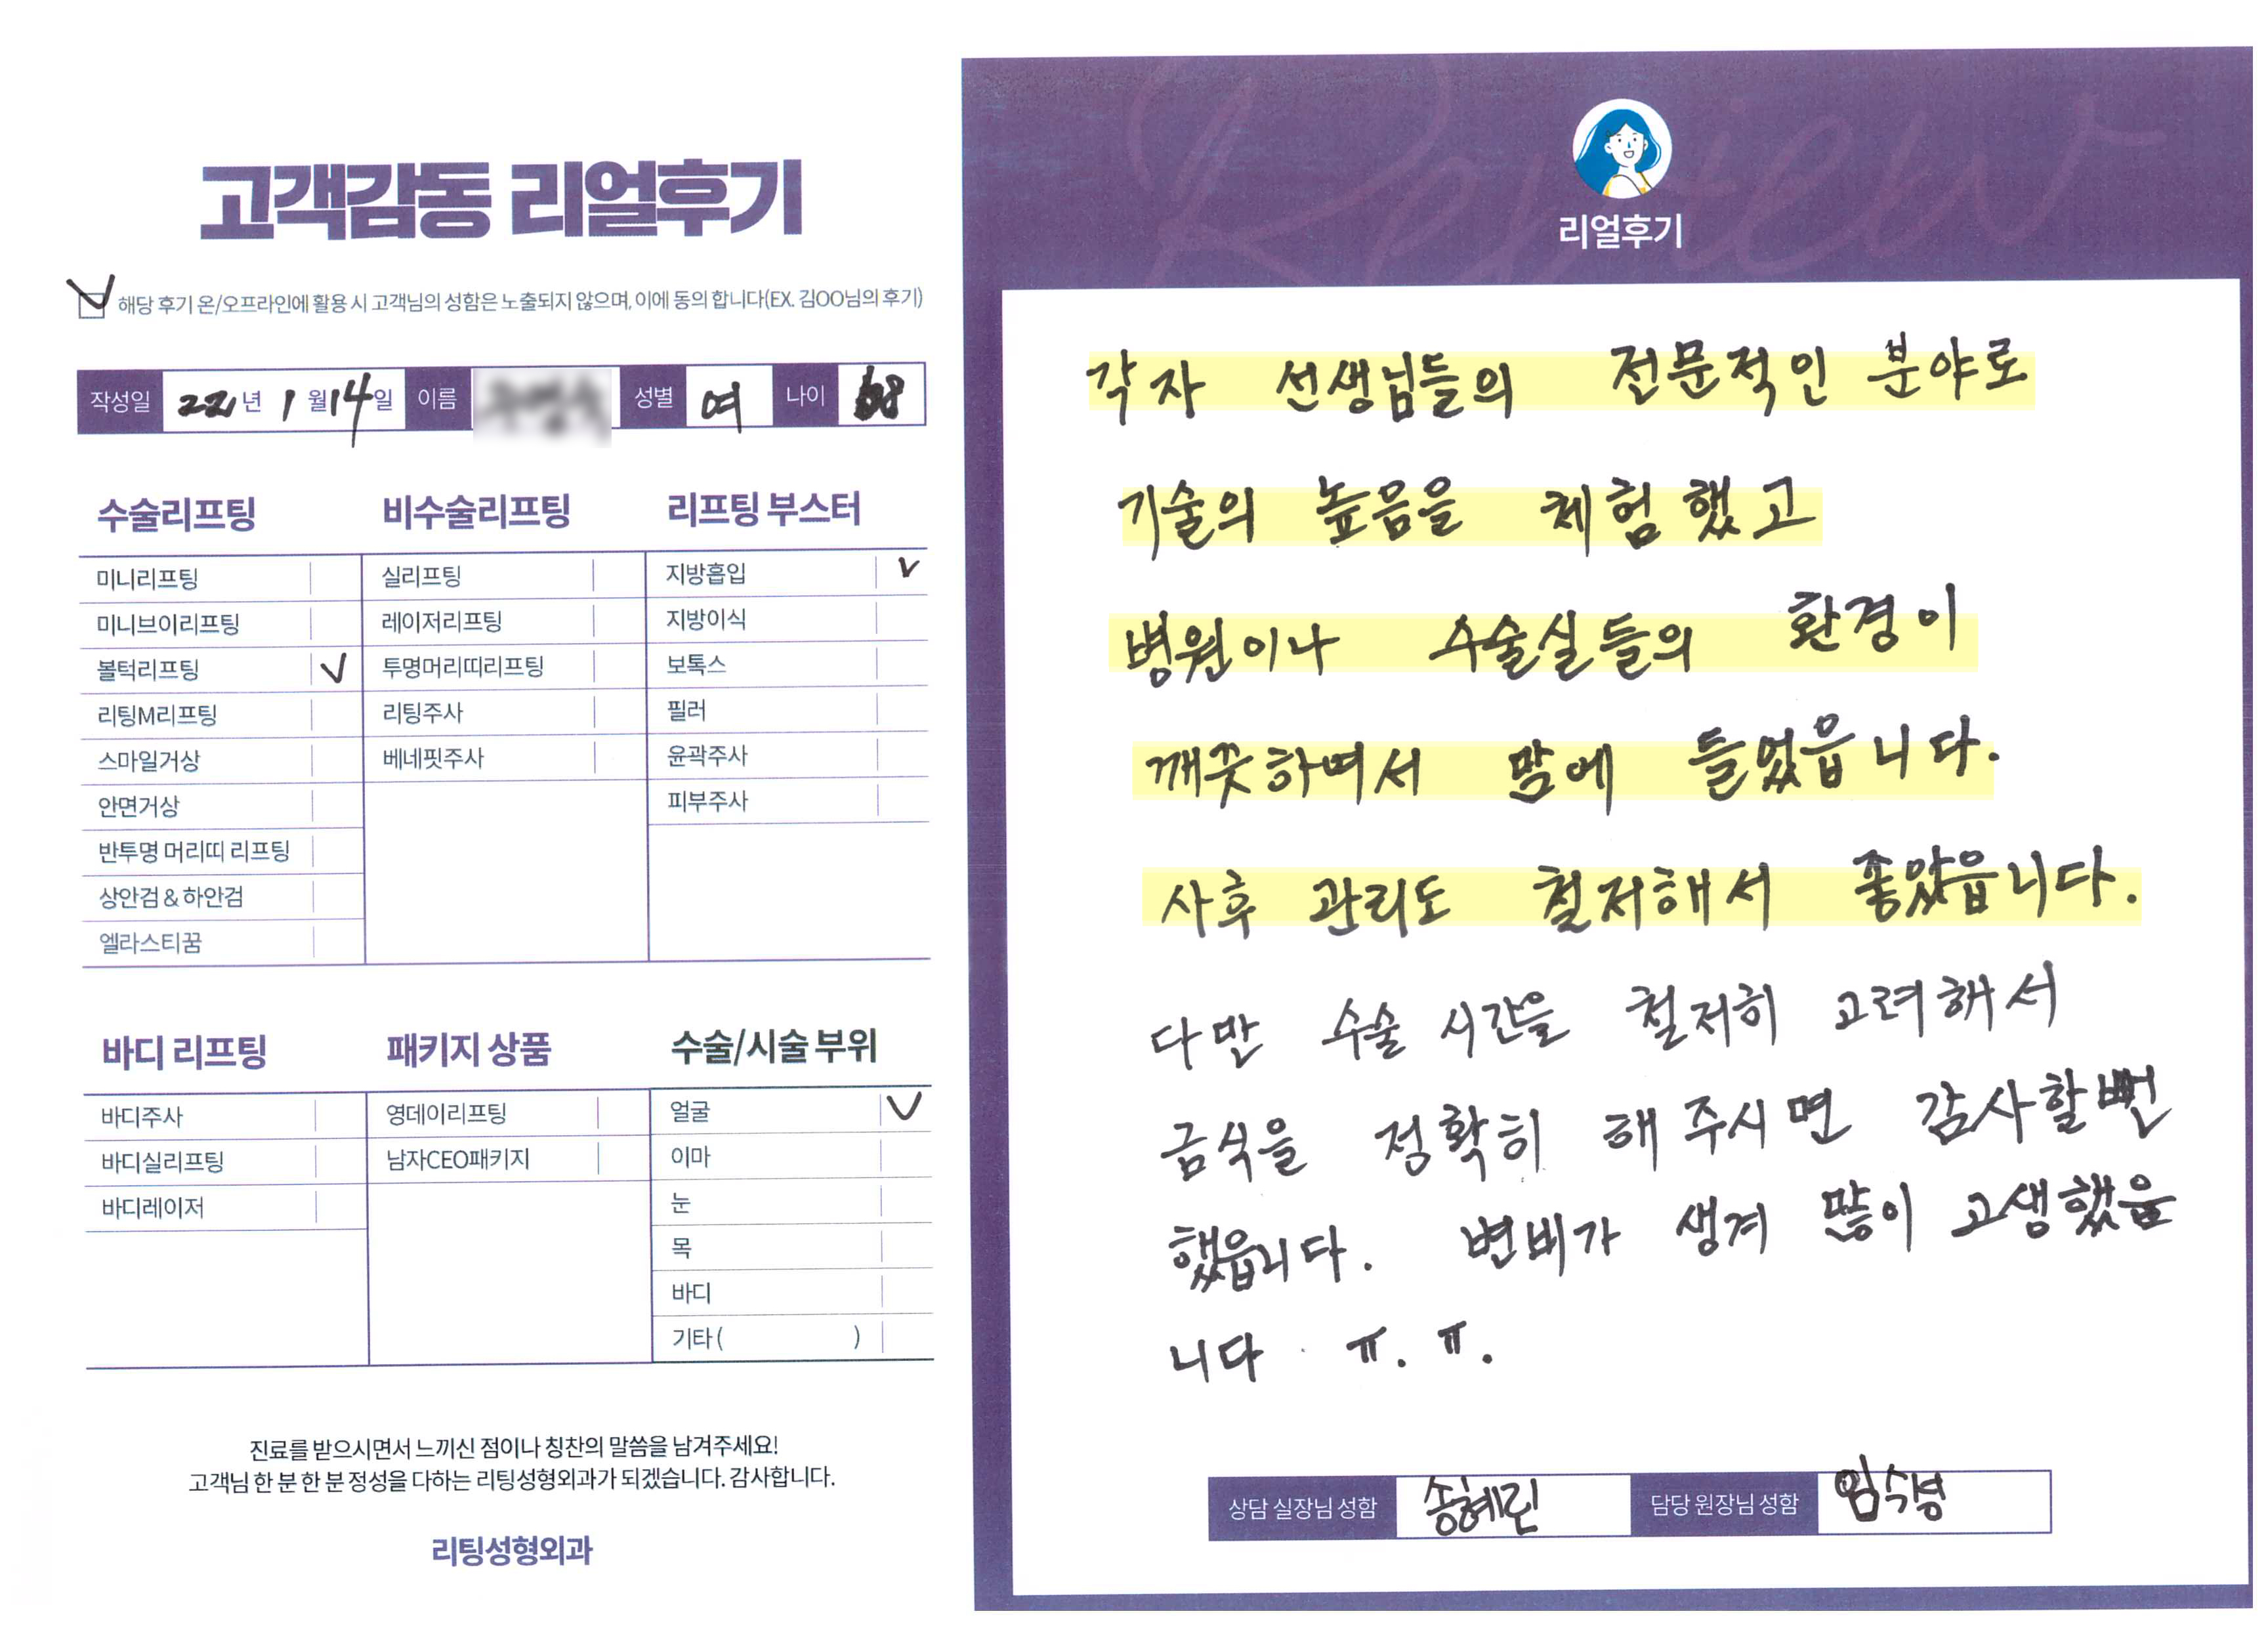 고객감동 리얼후기
해당 후기 온/오프라인에 활용 시 고객님의 성함은 노출되지 않으며, 이에 동의 합니다(EX. 김OO님의 후기)
작성일 221년 1월14일 이름 성별 여 나이
수술리프팅
미니리프팅
미니브이리프팅
볼턱리프팅 V
리팅M리프팅
스마일거상
안면거상
반투명 머리띠 리프팅
상안검 & 하안검
엘라스티꿈
비수술리프팅
실리프팅
레이저리프팅
투명머리띠리프팅
리팅주사
베네핏주사
리프팅 부스터
지방흡입 V
지방이식
보톡스
필러
윤곽주사
피부주사
바디 리프팅
바디주사
바디실리프팅
바디레이저
패키지 상품
영데이리프팅
남자CEO패키지
수술/시술 부위
얼굴 V
이마
눈
목
바디
기타 ( )
진료를 받으시면서 느끼신 점이나 칭찬의 말씀을 남겨주세요!
고객님 한 분 한 분 정성을 다하는 리팅성형외과가 되겠습니다. 감사합니다.
리팅성형외과
Review
리얼후기
각자 선생님들의 전문적인 분야로
기술의 높음을 체험했고
병원이나 수술실들의 환경이
깨끗하며서 맘에 들었읍니다.
사후 관리도 철저해서 좋았읍니다.
다만 수술 시간을 철저히 고려해서
금식을 정확히 해주시면 감사할뻔
했읍니다. 변비가 생겨 많이 고생했읍
니다. ㅠ.ㅠ.
상담 실장님 성함 송혜린 담당 원장님 성함 임수성